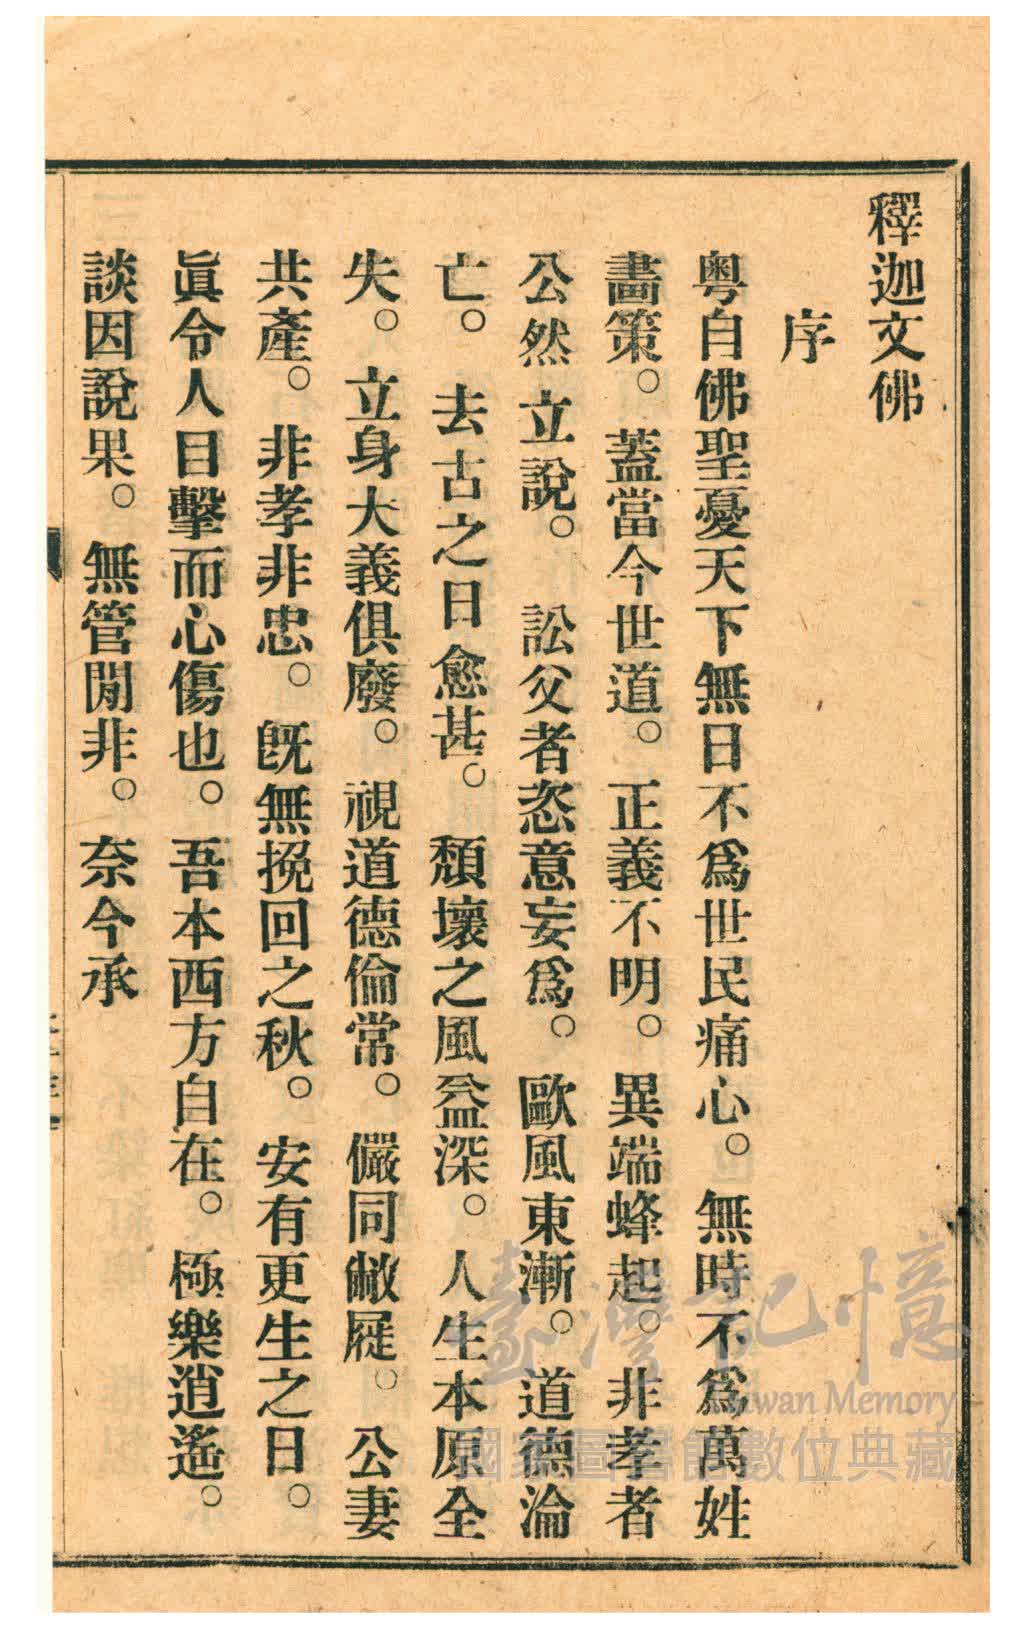 釋迦文佛
序
粤自佛聖憂天下無日不爲世民痛心。無時不爲萬姓
畫策。蓋當今世道。正義不明。異端蜂起。非孝者
公然立說。訟父者恣意妄爲。歐風東漸。道德淪
亡。去古之日愈甚。頹壞之風益深。人生本原全
失。立身大義俱廢。視道德倫常。儼同敝屣。公妻
共產。非孝非忠。旣無挽回之秋。安有更生之日。
眞令人目擊而心傷也。吾本西方自在。極樂逍遙。
談因說果。無管閒非。奈今承
臺灣記憶
Taiwan Memory
國家圖書館數位典藏